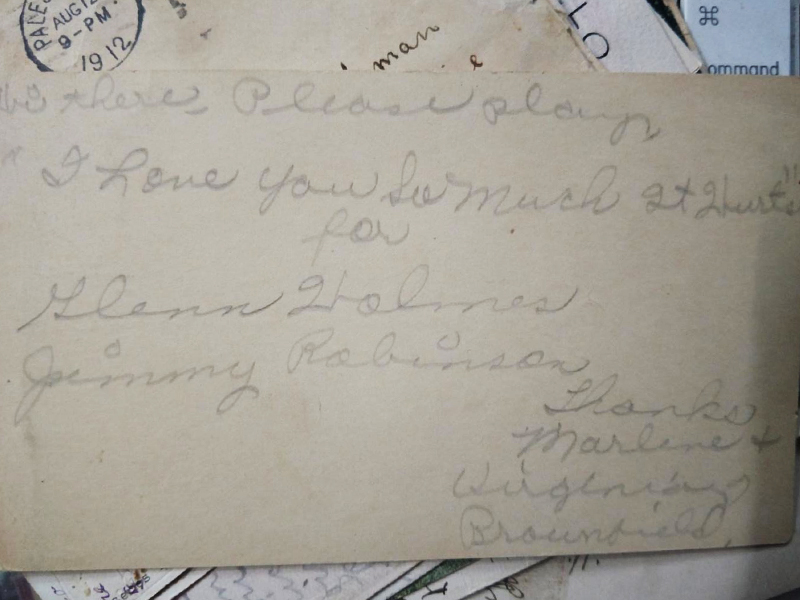 PALES
AUG 12
9-PM.
1912
man
e
LO
⌘
ommand
Hi there, Please play,
" I Love You So Much It Hurts"
for
Glenn Holmes
Jimmy Robinson
Thanks
Marlene +
Virginia
Brownfield,